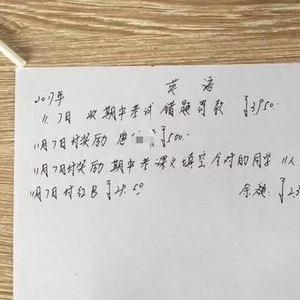 英语
2017年
11月7日 收期中考试错题罚款 ¥3950.
11月7日付奖励 唐 ¥500.
11月7日付奖励 期中考课文填空全对的同学 11人
11月7日付红B ¥29.50 余额: ¥23